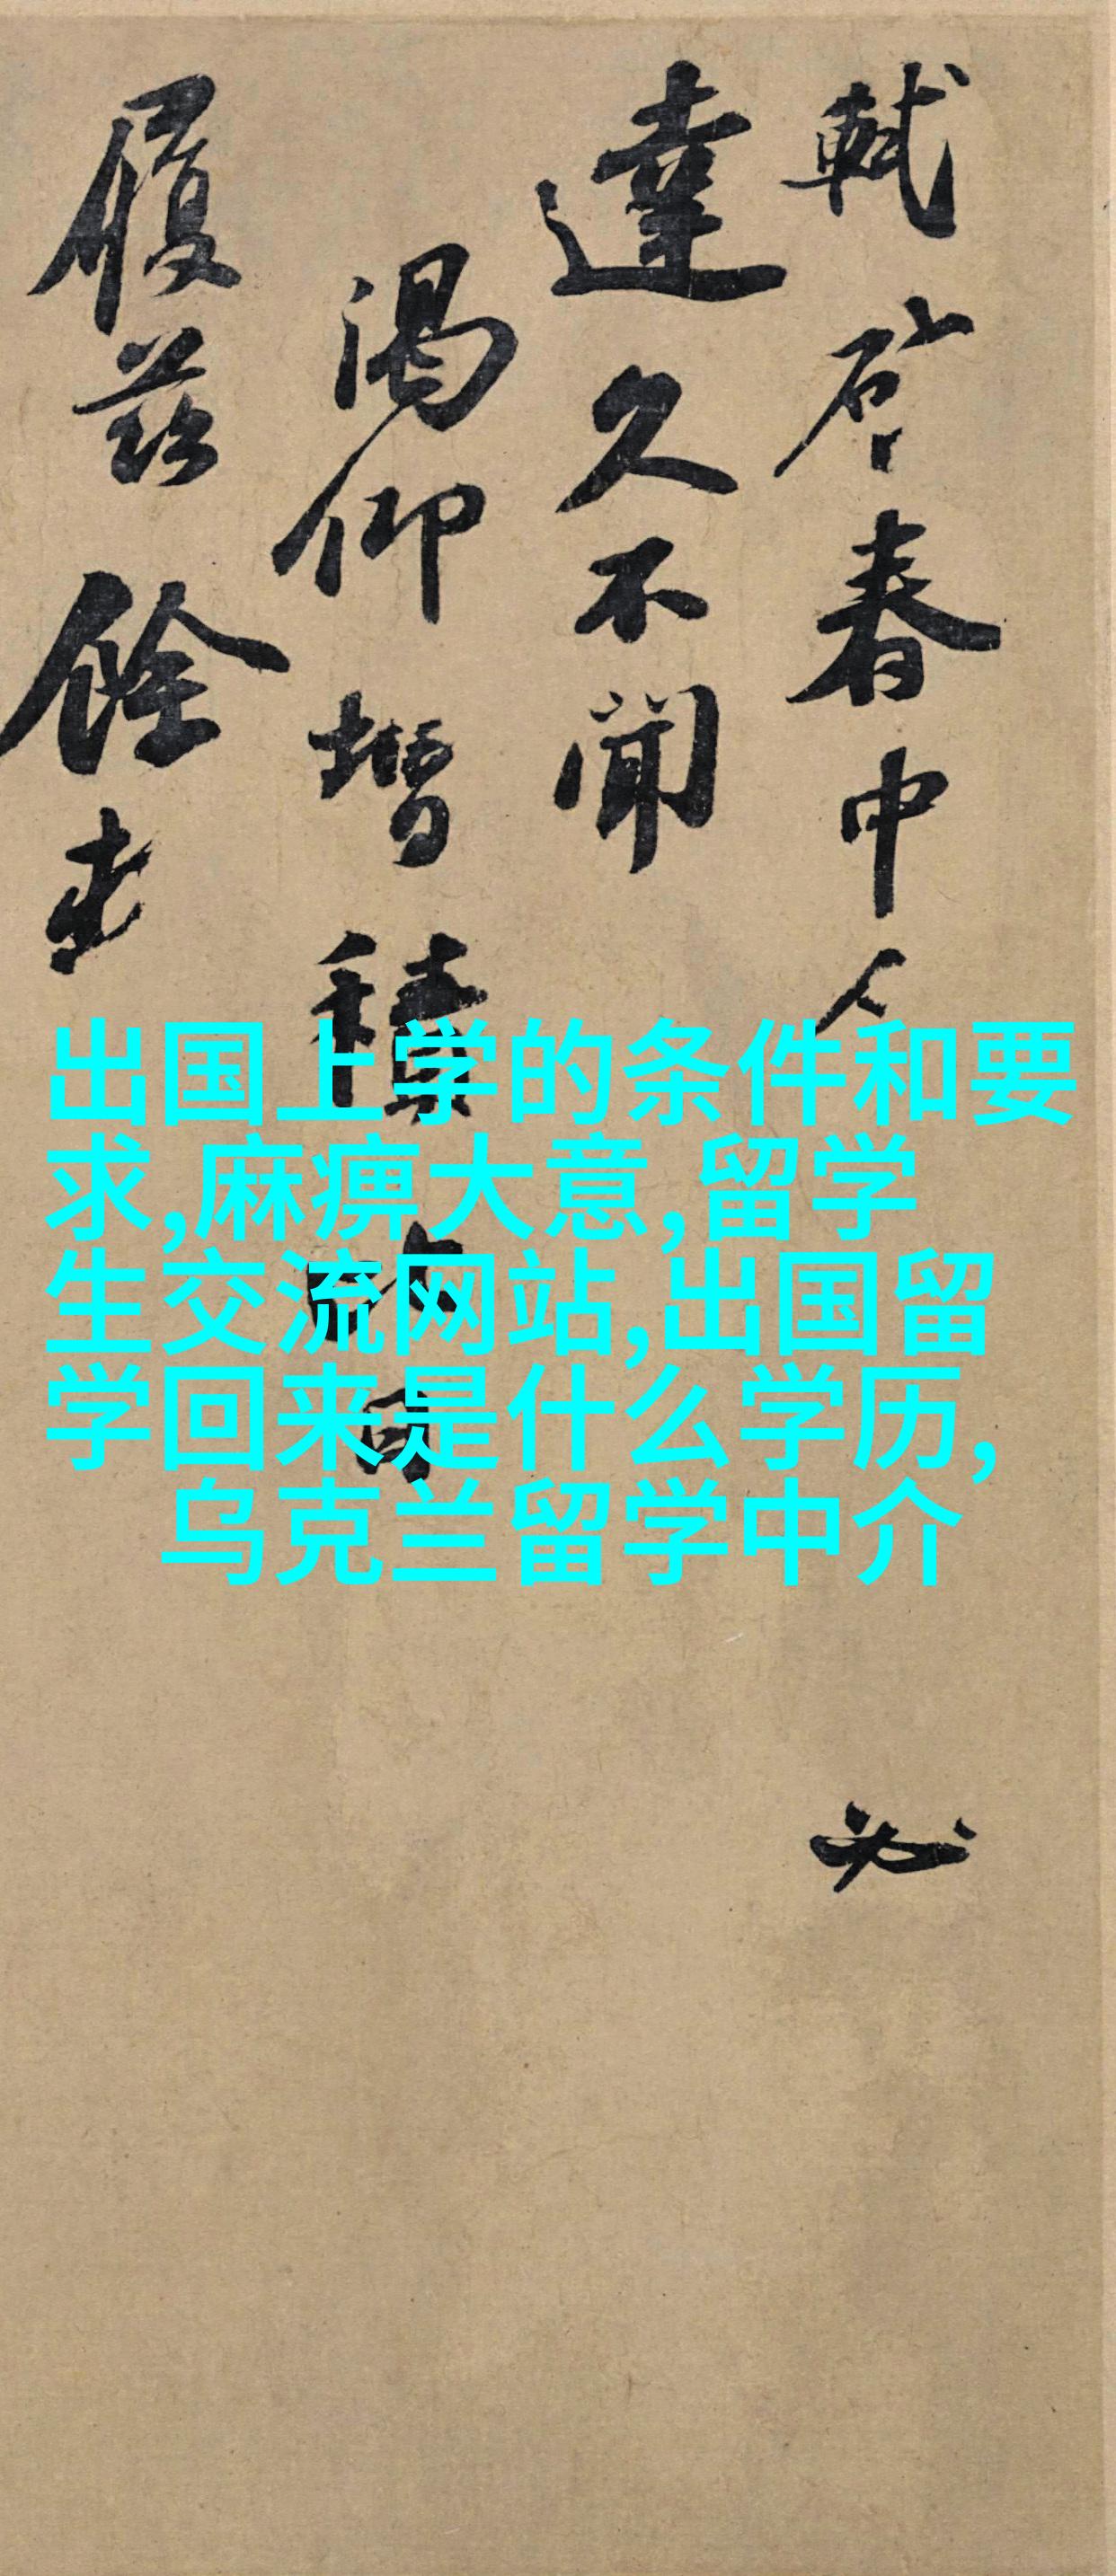 軾啓春中人必
達久不聞
渴仰增積
履茲餘
出国上学的条件和要
求,麻痹大意,留学
生交流网站,出国留
学回来是什么学历,
乌克兰留学中介